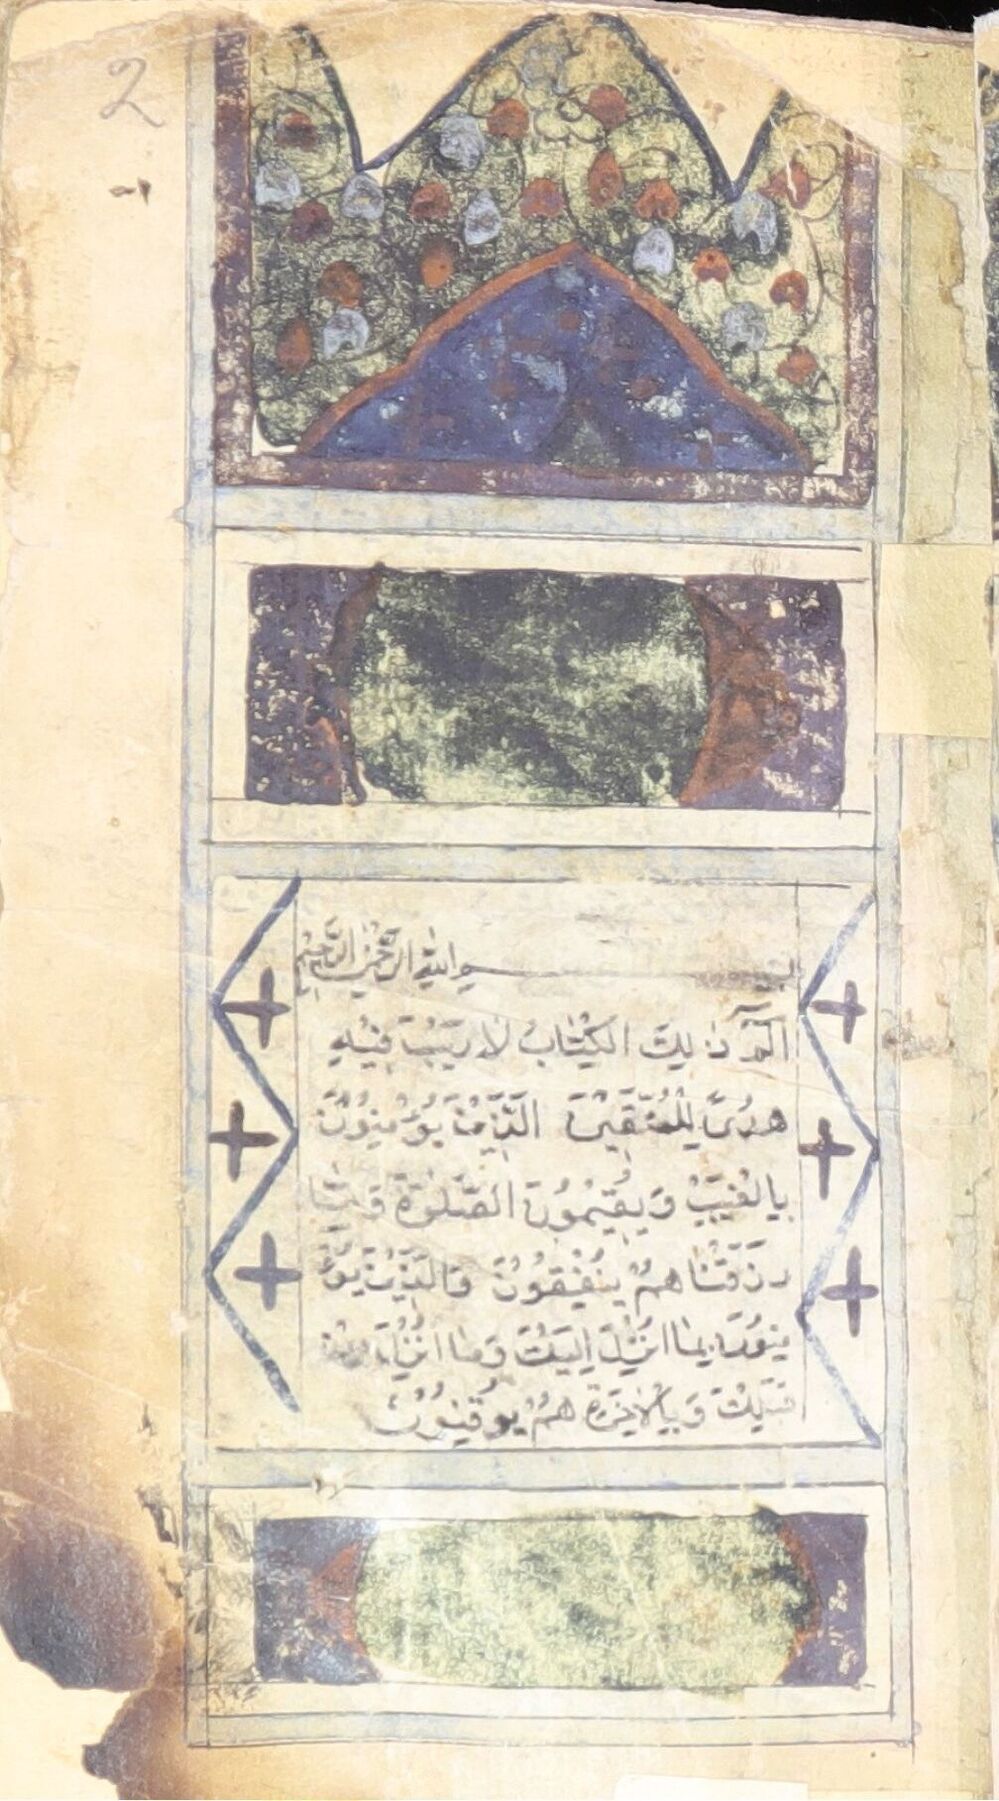 2
بســـم الله الرَّحْمٰنِ الرَّحِيْمِ
الٓمّٓ ذٰلِكَ الْكِتَابُ لَا رَيْبَ فِيْهِ
هُدًى لِلْمُتَّقِيْنَ الَّذِيْنَ يُؤْمِنُوْنَ
بِالْغَيْبِ وَيُقِيْمُوْنَ الصَّلٰوةَ وَمِمَّا
رَزَقْنَاهُمْ يُنْفِقُوْنَ وَالَّذِيْنَ يُؤْ
مِنُوْنَ بِمَا اُنْزِلَ اِلَيْكَ وَمَا اُنْزِلَ مِنْ
قَبْلِكَ وَبِالْاٰخِرَةِ هُمْ يُوْقِنُوْنَ